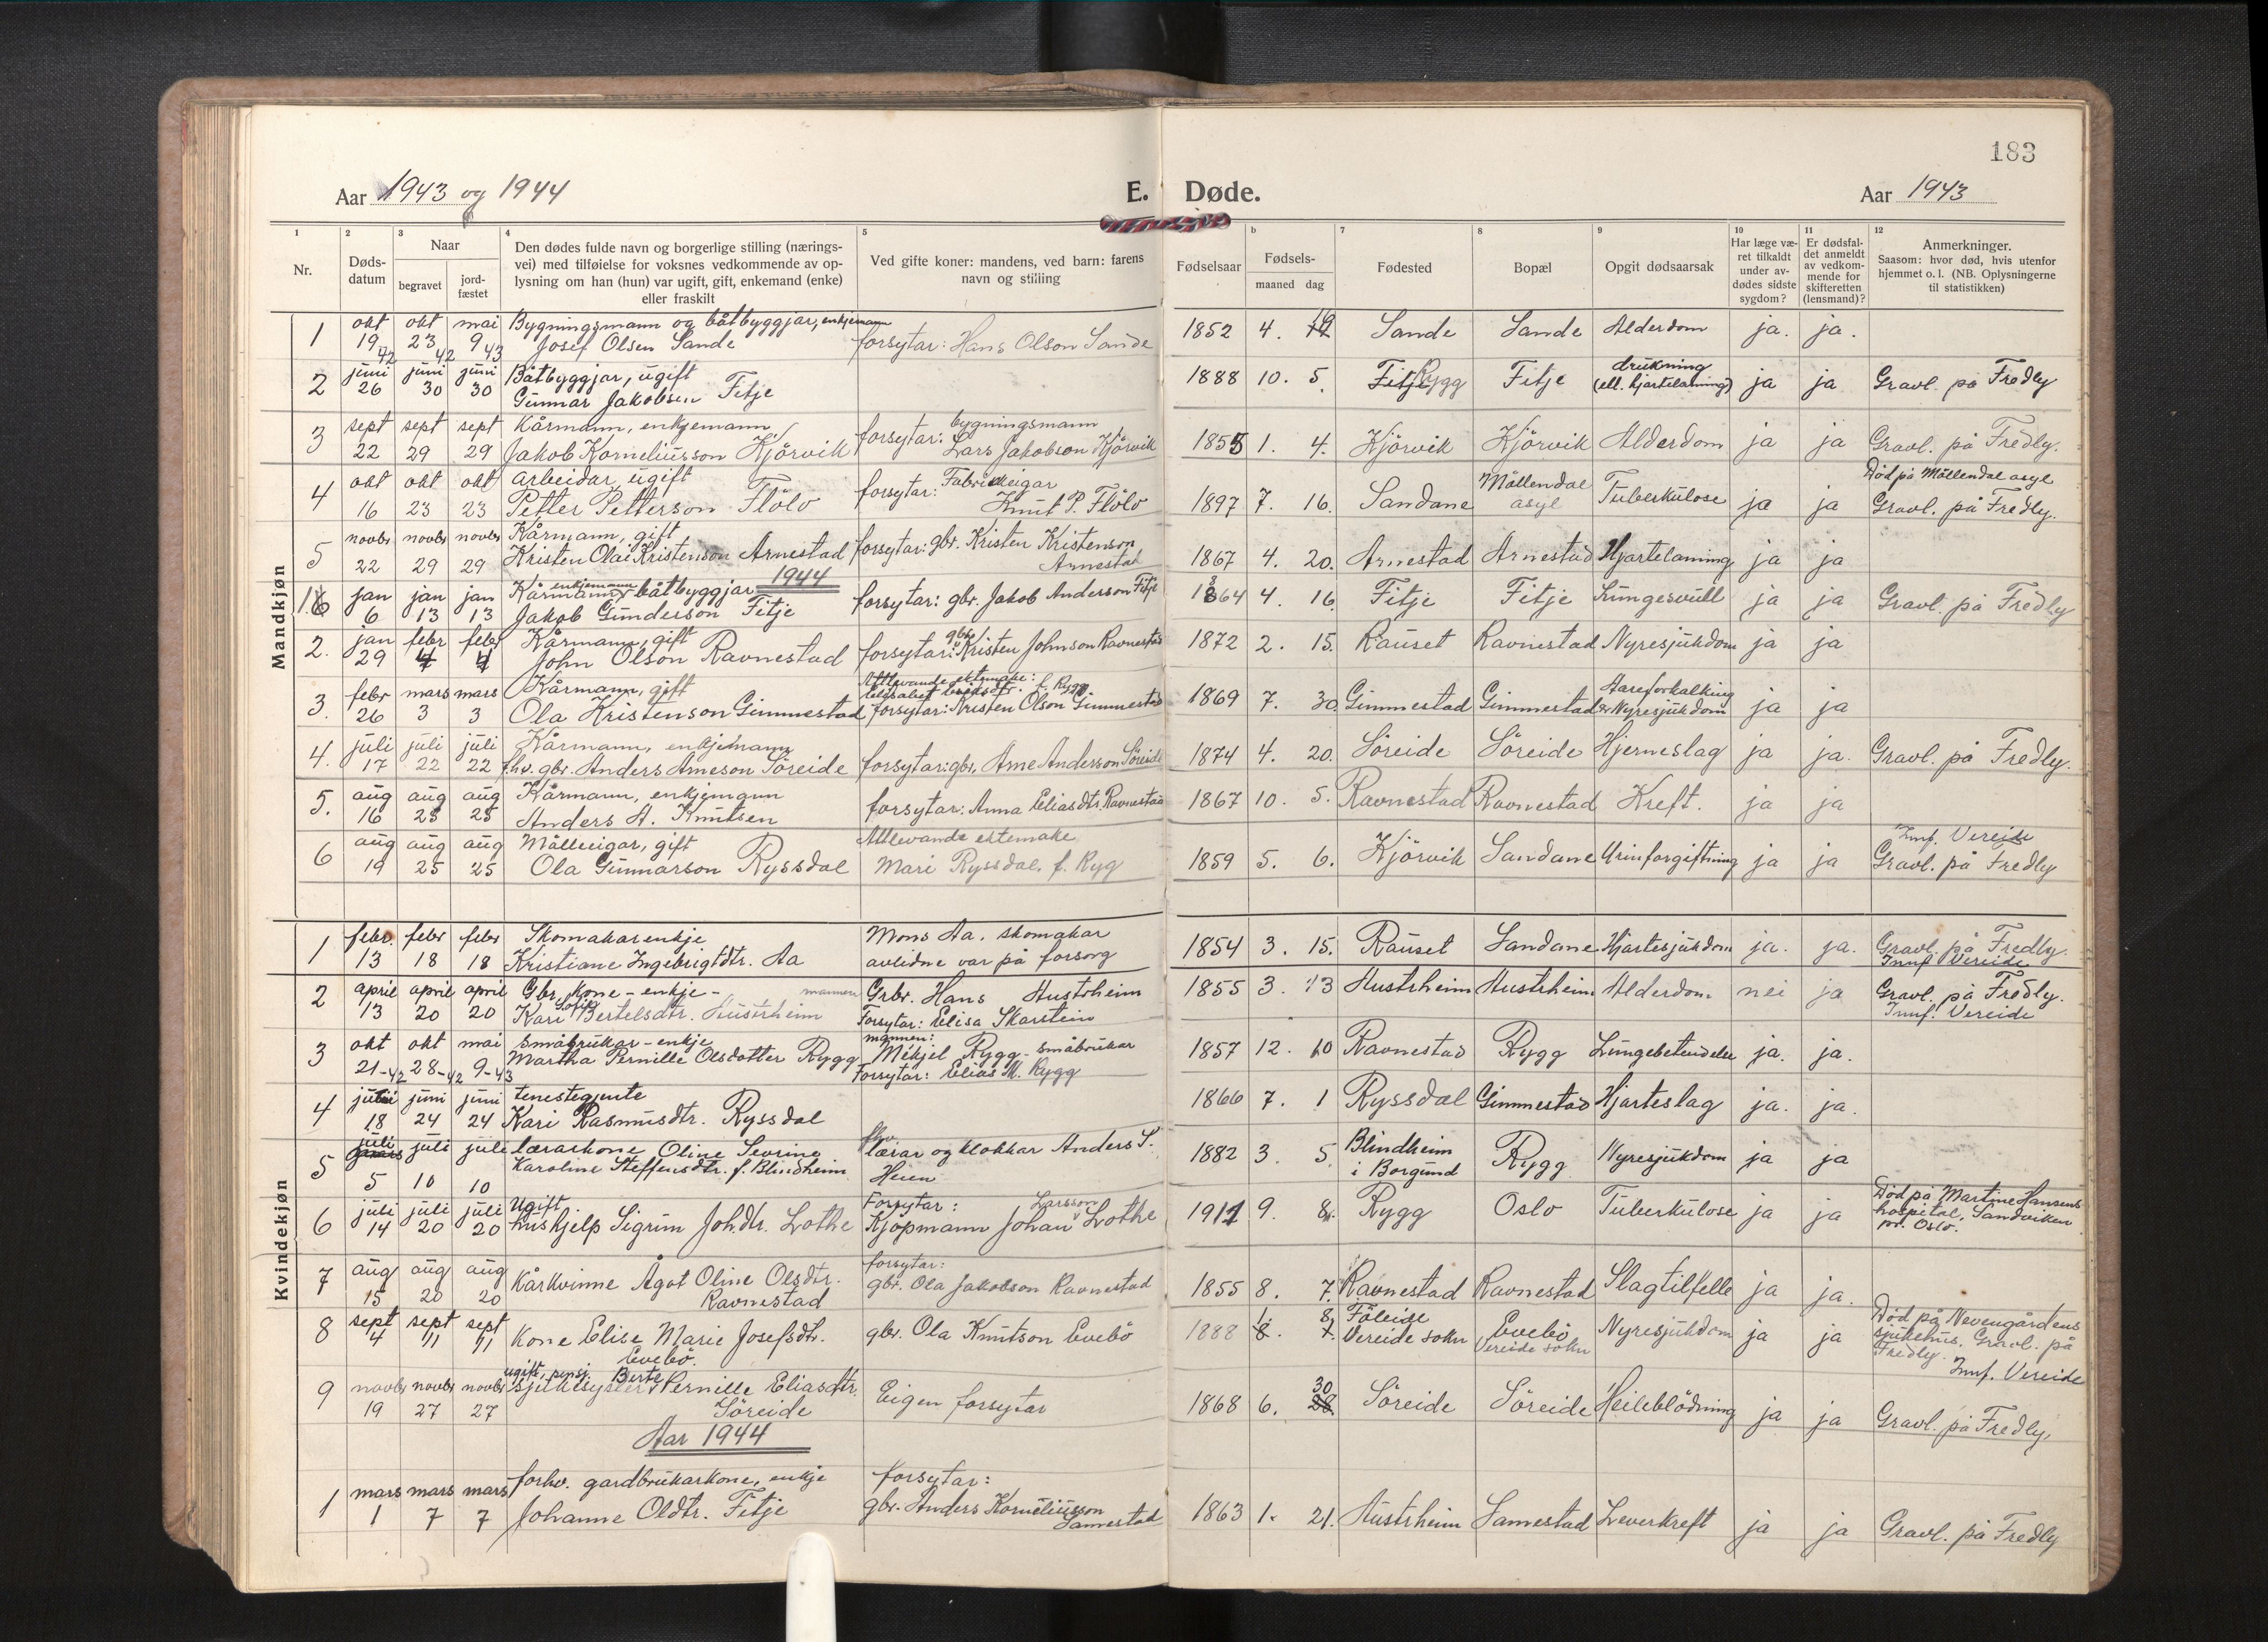 183
Aar 1943 og 1944
E. Døde.
Aar 1943
1 2 3 4 5 b 7 8 9 10 11 12
Nr.
Døds-
datum
Naar
begravet
jord-
fæstet
Den dødes fulde navn og borgerlige stilling (nærings-
vei) med tilføielse for voksnes vedkommende av op-
lysning om han (hun) var ugift, gift, enkemand (enke)
eller fraskilt
Ved gifte koner: mandens, ved barn: farens
navn og stilling
Fødselsaar
Fødsels-
maaned dag
Fødested
Bopæl
Opgit dødsaarsak
Har læge væ-
ret tilkaldt
under av-
dødes sidste
sygdom?
Er dødsfal-
det anmeldt
av vedkom-
mende for
skifteretten
(lensmand)?
Anmerkninger.
Saasom: hvor død, hvis utenfor
hjemmet o. l. (NB. Oplysningerne
til statistikken)
Mandkjøn
1 okt 19 42 okt 23 42 mai 9 43 Bygningsmann og båtbyggjar, enkjemann
Josef Olsen Sande forsytar: Hans Olson Sande 1852 4. 19 Sande Sande Alderdom ja. ja.
2 juni 26 juni 30 juni 30 Båtbyggjar, ugift
Gunnar Jakobsen Fitje 1888 10. 5. Fitje Rygg Fitje drukning
(ell. hjartelaming) ja ja Gravl. på Fredly
3 sept 22 sept 29 sept 29 Kårmann, enkjemann
Jakob Korneliusson Kjörvik forsytar: bygningsmann
Lars Jakobson Kjörvik 1855 1. 4. Kjörvik Kjörvik Alderdom ja ja Gravl. på Fredly.
4 okt 16 okt 23 okt 23 arbeidar, ugift
Petter Petterson Flölo forsytar: Fabrikkeigar
Knut P. Flölo 1897 7. 16. Sandane Möllendal
asyl Tuberkulose ja ja Död på Möllendal asyl
Gravl. på Fredly.
5 novbr 22 novbr 29 novbr 29 Kårmann, gift
Kristen Olai Kristenson Arnestad forsytar: gbr. Kristen Kristenson
Arnestad 1867 4. 20. Arnestad Arnestad Hjartelaming ja ja
1944
1 jan 6 jan 13 jan 13 Kårmann enkjemann båtbyggjar
Jakob Gunderson Fitje forsytar: gbr. Jakob Anderson Fitje 1864 4. 16. Fitje Fitje Lungesvull ja ja Gravl. på Fredly
2. jan 29 febr 4 febr 4 Kårmann, gift
John Olson Ravnestad forsytar: gbr. Kristen Johnson Ravnestad 1872 2. 15. Rauset Ravnestad Nyresjukdom ja ja
3. febr 26 mars 3 mars 3 Kårmann, gift
Ola Kristenson Gimmestad Attlevande ektemake:
f. Rygg
forsytar: Kristen Olson Gimmestad 1869 7. 30 Gimmestad Gimmestad Aareforkalking
& Nyresjukdom ja ja
4. juli 17 juli 22 juli 22 Kårmann, enkjemann
fhv. gbr. Anders Arneson Söreide forsytar: gbr. Arne Anderson Söreide 1874 4. 20. Söreide Söreide Hjerneslag ja ja. Gravl. på Fredly.
5. aug 16 aug 23 aug 25 Kårmann, enkjemann
Anders A. Knutsen forsytar: Anna Eliasdtr. Ravnestad 1867 10. 5. Ravnestad Ravnestad Kreft. ja ja
6 aug 19 aug 25 aug 25 Målleeigar, gift
Ola Gunnarson Ryssdal Attlevande ektemake
Mari Ryssdal, f. Ryg 1859 5. 6. Kjörvik Sandane Urinforgiftning ja ja Innf. Vereide
Gravl. på Fredly
Kvindekjøn
1 febr. 13 febr 18 febr 18 Skomakarenkje
Kristiane Ingebrigtdtr. Aa Mons Aa, skomakar
avlidne var på forsorg 1854 3. 15. Rauset Sandane Hjartesjukdom ja. ja. Gravl. på Fredly.
Innf. Vereide
2 april 13 april 20 april 20 Gbr. kone - enkje -
Kari Sofie Bertelsdtr. Austrheim mannen Grbr. Hans Austrheim
Forsytar: Elisa Skarstein 1855 3. 13 Austrheim Austrheim Alderdom nei ja Gravl. på Fredly.
Innf. Vereide
3 okt 21-42 okt 28-42 mai 9-43 småbrukar - enkje
Martha Pernille Olsdotter Rygg mannen:
Mikjel Rygg - småbrukar
Forsytar: Elias M. Rygg 1857 12. 10 Ravnestad Rygg Lungebetendelse ja. ja.
4 juni 18 juni 24 juni 24 tenestegjente
Kari Rasmusdtr. Ryssdal 1866 7. 1 Ryssdal Gimmestad Hjarteslag ja. ja.
5 juli 5 juli 10 juli 10 lærarkone Oline Sevrine
Karoline Steffensdtr. f. Blindheim fhv.
lærar og klokkar Anders S.
Heien 1882 3. 5. Blindheim
i Borgund Rygg Nyresjukdom ja ja
6 juli 14 juli 20 juli 20 Ugift.
hushjelp Sigrun Johdtr. Lothe Forsytar:
Kjöpmann Johan Larsson Lothe 1911 9. 8. Rygg Oslo Tuberkulose ja ja Död på Martine Hansens
hospital, Sandviken
pr. Oslo.
7 aug 15 aug 20 aug 20 Kårkvinne Ågot Oline Olsdtr.
Ravnestad forsytar:
gbr. Ola Jakobson Ravnestad 1855 8. 7. Ravnestad Ravnestad Slagtilfelle ja ja.
8 sept 4 sept 11 sept 11 Kone Elise Marie Josefsdtr.
Evebö. gbr. Ola Knutson Evebö 1888 1. 8. Föleide
Vereide sokn Evebö
Vereide sokn Nyresjukdom ja ja Död på Nevengårdens
sjukehus. Gravl. på
Fredly. Innf. Vereide
9 novbr 19 novbr 27 novbr 27 ugift, pensj.
sjukesyster Berte Pernille Eliasdtr.
Söreide Eigen forsytar 1868 6. 30 Söreide Söreide Heileblödning ja ja Gravl. på Fredly.
Aar 1944
1 mars 1 mars 7 mars 7 forhv. gardbrukarkone, enkje
Johanne Oldtr. Fitje forsytar:
gbr. Anders Korneliusson
Samestad 1863 1. 21. Austrheim Samestad Leverkreft ja ja Gravl. på Fredly